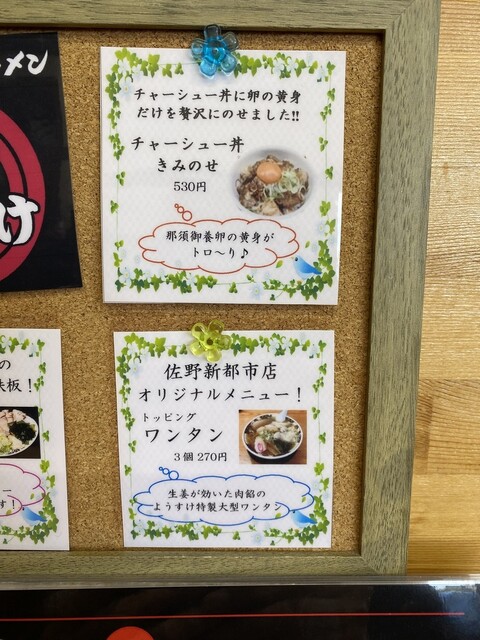 ーメン
け
チャーシュー丼に卵の黄身
だけを贅沢にのせました!!
チャーシュー丼
きみのせ
530円
那須御養卵の黄身が
トロ〜り♪
の
板！
ー
す！
佐野新都市店
オリジナルメニュー！
トッピング
ワンタン
3個 270円
生姜が効いた肉餡の
ようすけ特製大型ワンタン